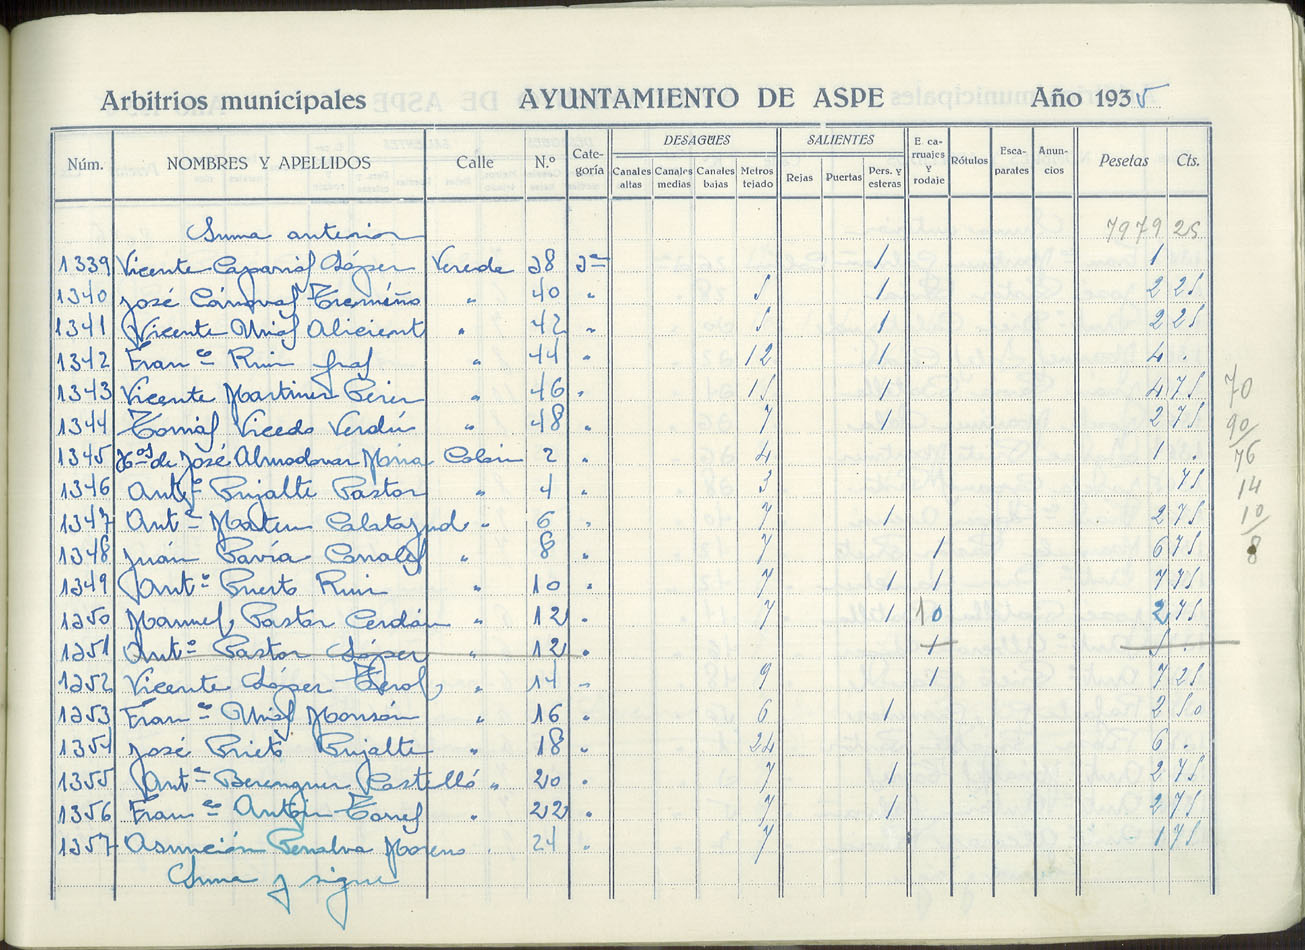 Arbitrios municipales AYUNTAMIENTO DE ASPE Año 1935
Núm. NOMBRES Y APELLIDOS Calle N.º Categoría DESAGÜES Canales altas Canales medias Canales bajas Metros tejado SALIENTES Rejas Puertas Pers. y esteras E. carruajes y rodaje Rótulos Escaparates Anuncios Pesetas Cts.
Suma anterior 7979 25
1339 Vicente Caparrós López Vereda 38 2ª 1 1
1340 José Cánovas Tremiño " 40 " 5 1 2 25
1341 Vicente Urios Alicient " 42 " 5 1 2 25
1342 Franco " 44 " 12 1 4 .
1343 Vicente Martínez Pérez " 46 " 15 1 4 75
1344 Tomás Vicedo Verdú " 48 " 7 1 2 75
1345 Hos de José Almodovar María Colón 2 " 4 1 .
1346 Antº Pujalte Pastor " 4 " 3 75
1347 Antº Calatayud " 6 " 7 1 2 75
1348 Juán Pavía Corrales " 8 " 7 1 6 75
1349 Antº Puerto Ruiz " 10 " 7 1 1 7 75
1350 Manuel Pastor Cerdán " 12 " 7 1 10 2 75
1351 Antº Pastor López " 12 " 1 5 .
1352 Vicente López Terol " 14 " 9 1 7 25
1353 Franco Urios Monzón " 16 " 6 1 2 50
1354 José Prieto Pujalte " 18 " 24 6 .
1355 Antº Berenguer Castelló " 20 " 7 1 2 75
1356 Franco Antón Torres " 22 " 7 1 2 75
1357 Asunción Penalva Moreno " 24 " 7 1 75
Suma y sigue
70
90
76
14
10
8